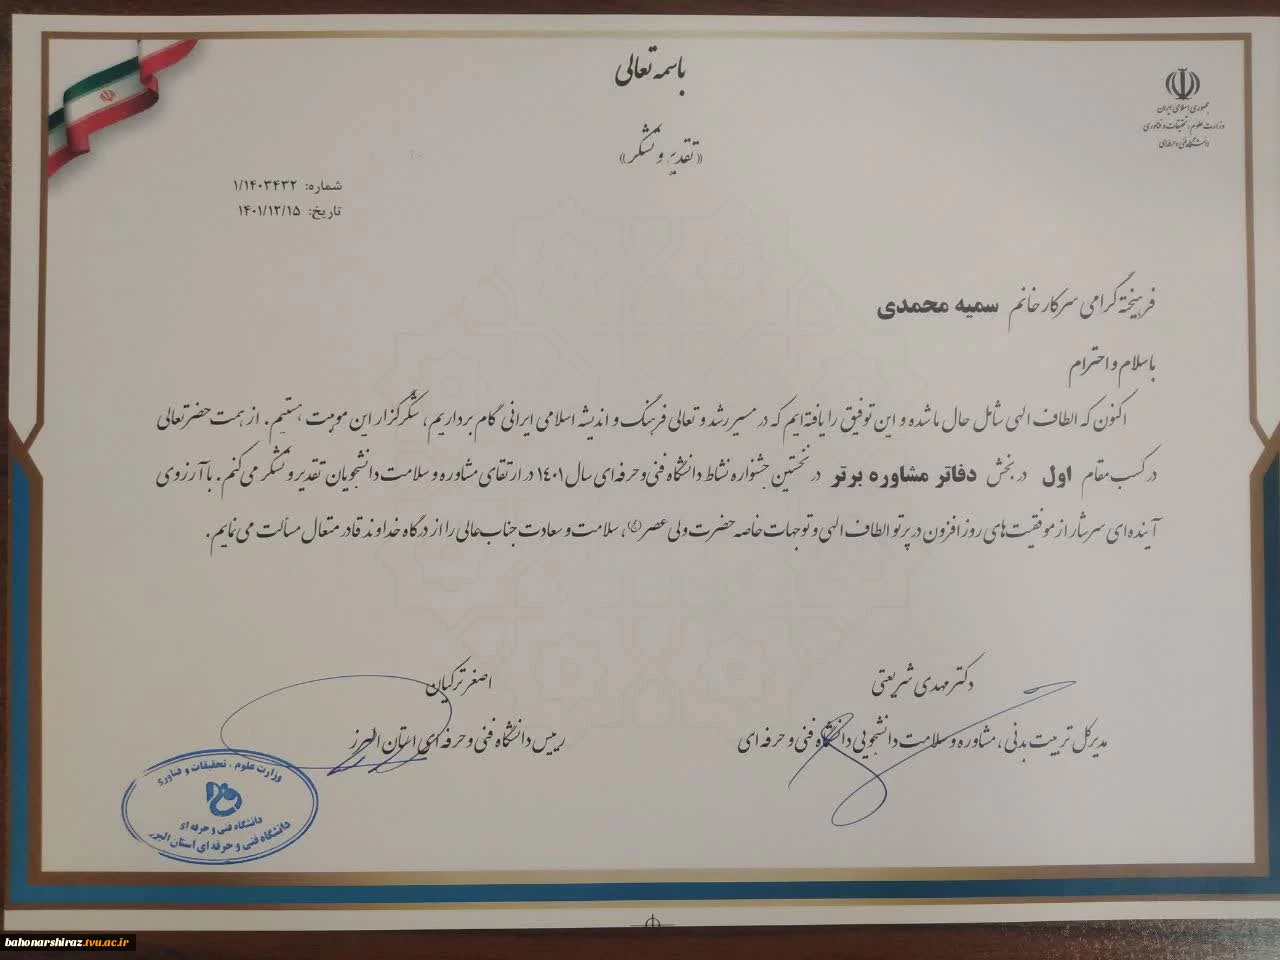 باسمه تعالی
جمهوری اسلامی ایران
وزارت علوم، تحقیقات و فناوری
دانشگاه فنی و حرفه‌ای
«تقدیر و تشکر»
شماره: ۱/۱۴۰۳۴۳۲
تاریخ: ۱۴۰۱/۱۲/۱۵
فرهیخته گرامی سرکار خانم سمیه محمدی
با سلام و احترام
اکنون که الطاف الهی شامل حال ما شده و این توفیق را یافته‌ایم که در مسیر رشد و تعالی فرهنگ و اندیشه اسلامی ایرانی گام برداریم، شکرگزار این موهبت هستیم. از همت حضرتعالی
در کسب مقام اول در بخش دفاتر مشاوره برتر در نخستین جشنواره نشاط دانشگاه فنی و حرفه‌ای سال ۱۴۰۱ در ارتقای مشاوره و سلامت دانشجویان تقدیر و تشکر می‌کنم. با آرزوی
آینده‌ای سرشار از موفقیت‌های روزافزون در پرتو الطاف الهی و توجهات خاصه حضرت ولی عصر (عج)، سلامت و سعادت جناب‌عالی را از درگاه خداوند قادر متعال مسألت می‌نمایم.
دکتر مهدی شریعتی
مدیرکل تربیت بدنی، مشاوره و سلامت دانشجویی دانشگاه فنی و حرفه ای
اصغر ترکیان
رییس دانشگاه فنی و حرفه ای استان البرز
وزارت علوم، تحقیقات و فناوری
دانشگاه فنی و حرفه ای
دانشگاه فنی و حرفه ای استان البرز
bahonarshiraz.tvu.ac.ir